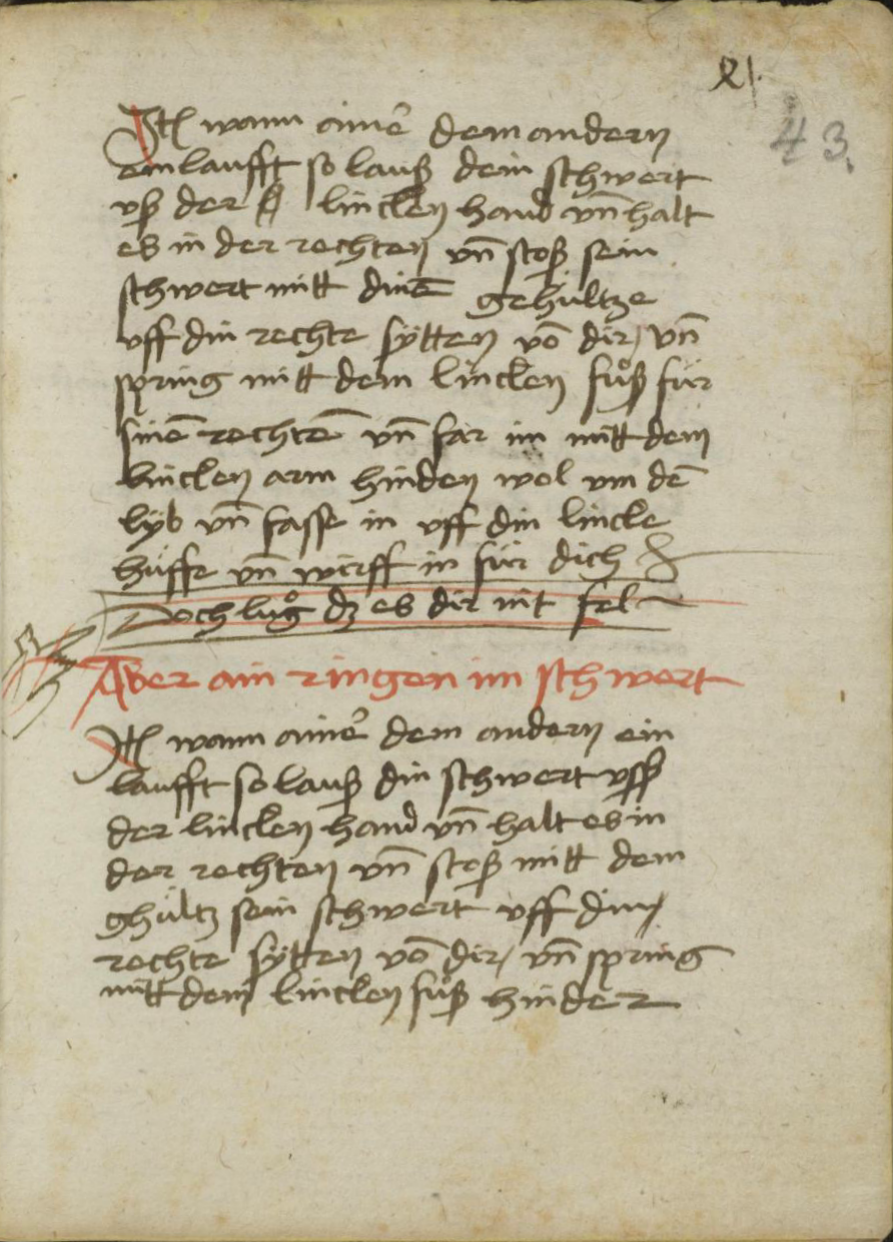 xl.
43.
Itē wann aine᷑ dem andern
einlaufft so lauß dein schwert
vß der linclen hand vn̄ halt
es in der rechten vn̄ stoß sein
schwert mitt dinē gehültze
vff din rechte sÿtten vō dir / vn̄
spring mitt dem linclen fůß für
sinē rechtē vn̄ far im mitt dem
linclen arm hinden wol vm dē
lyb vn̄ fasse in vff din lincle
hüffe vn̄ wirff in für dich
Doch lůg dz es dir nit fel
Aber ain ringen im schwert
Itē wann aine᷑ dem andern ein
laufft so lauß din schwert vsß
der linclen hand vn̄ halt es in
der rechten vn̄ stoß mitt dem
ghültz sein schwert vff din
rechte sÿtten vō dir / vn̄ spring
mitt dem linclen fůß hinder